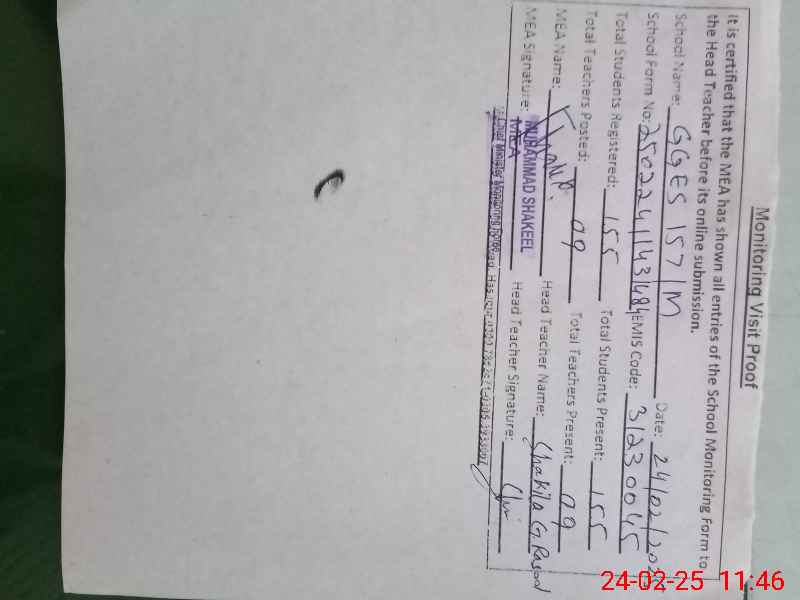 Monitoring Visit Proof
It is certified that the MEA has shown all entries of the School Monitoring Form to
the Head Teacher before its online submission.
School Name: GGES 157/M Date: 24/02/2025
School Form No: EMIS Code: 31230045
Total Students Registered: 155 Total Students Present: 155
Total Teachers Posted: 09 Total Teachers Present: 09
MEA Name: Head Teacher Name: Shakila G Rasool
MUHAMMAD SHAKEEL
MEA Signature: MEA Head Teacher Signature:
Chief Minister Monitoring Force
24-02-25 11:46